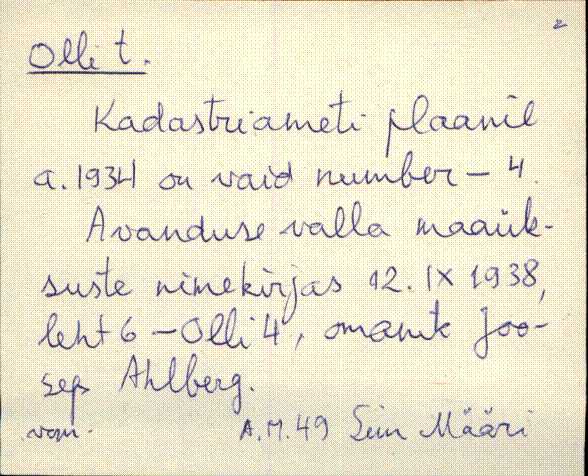 2
Olli t.
Kadastriameti plaanil
a. 1934 on vaid number – 4.
Avanduse valla maaük-
suste nimekirjas 12. IX 1938,
leht 6 – Olli 4, omanik Joo-
sep Ahlberg.
A.M. 49 Määri